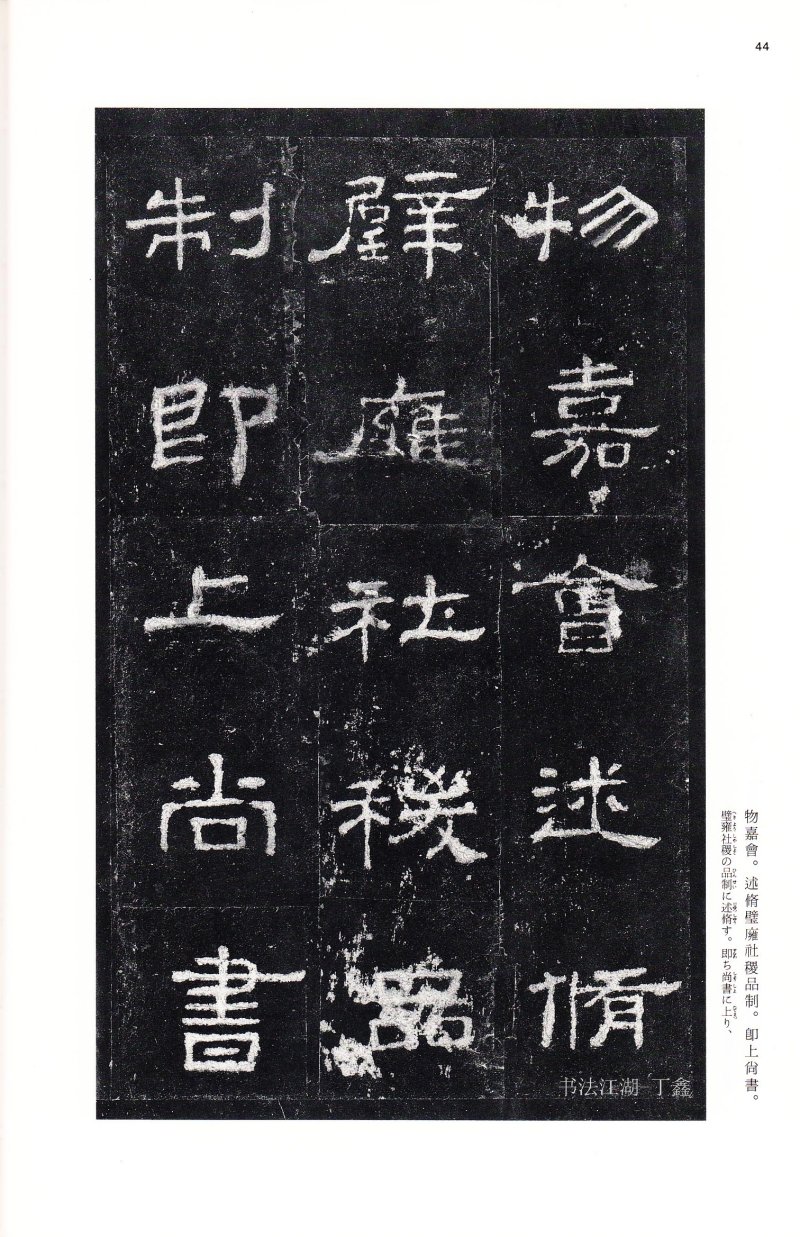 44
物嘉會述脩
璧廱社稷品
制即上尚書
物嘉會。述脩璧廱社稷品制。卽上尙書。
璧雍社稷の品制に述脩す。即ち尚書に上り、
书法江湖 丁鑫